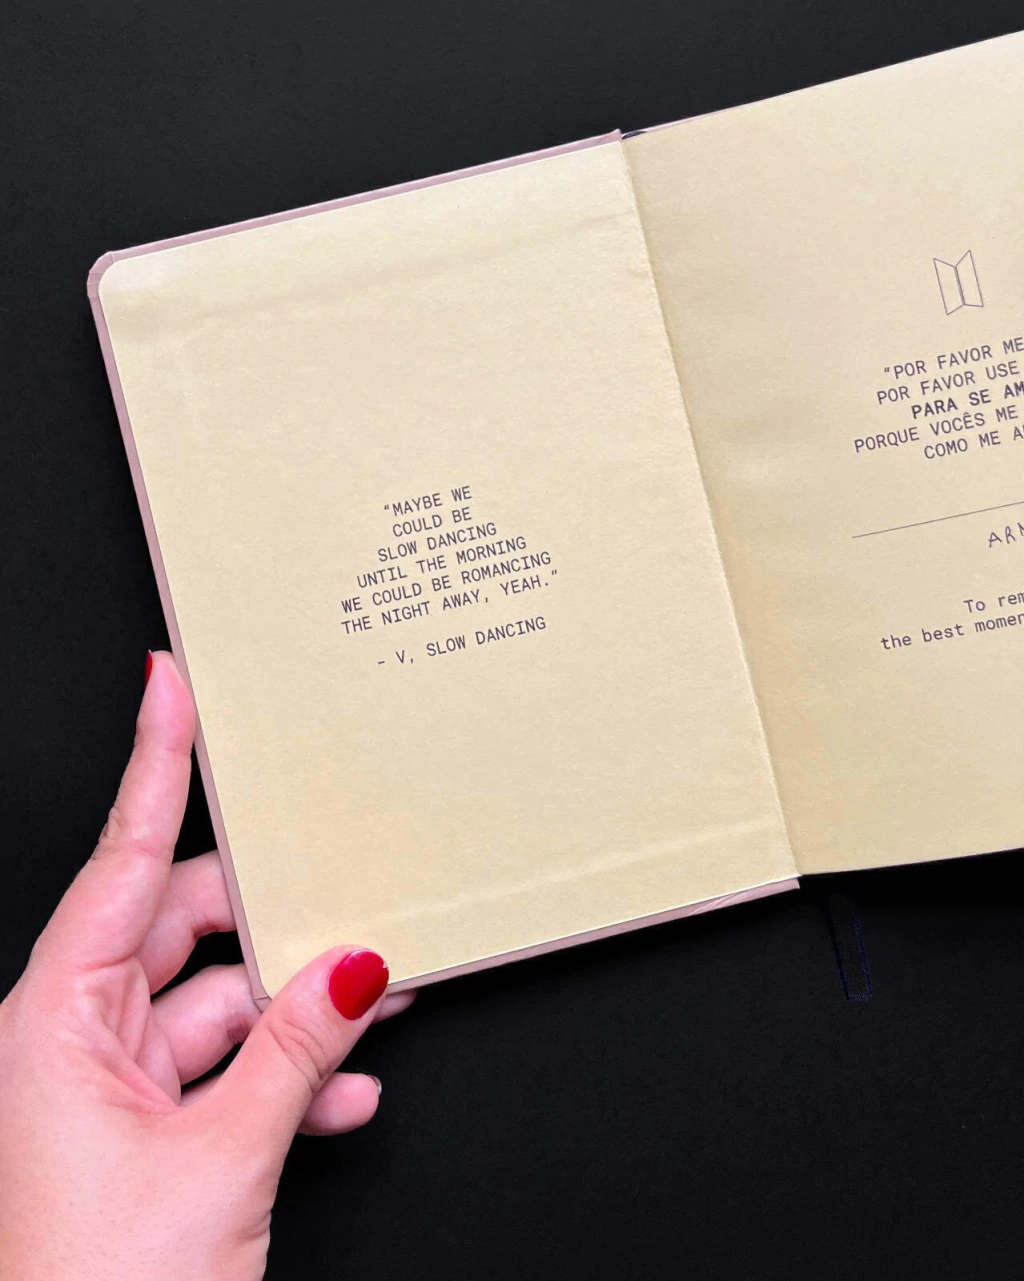 "MAYBE WE
COULD BE
SLOW DANCING
UNTIL THE MORNING
WE COULD BE ROMANCING
THE NIGHT AWAY, YEAH."
- V, SLOW DANCING
"POR FAVOR ME
POR FAVOR USE
PARA SE
PORQUE VOCÊS ME
COMO ME
To
the best